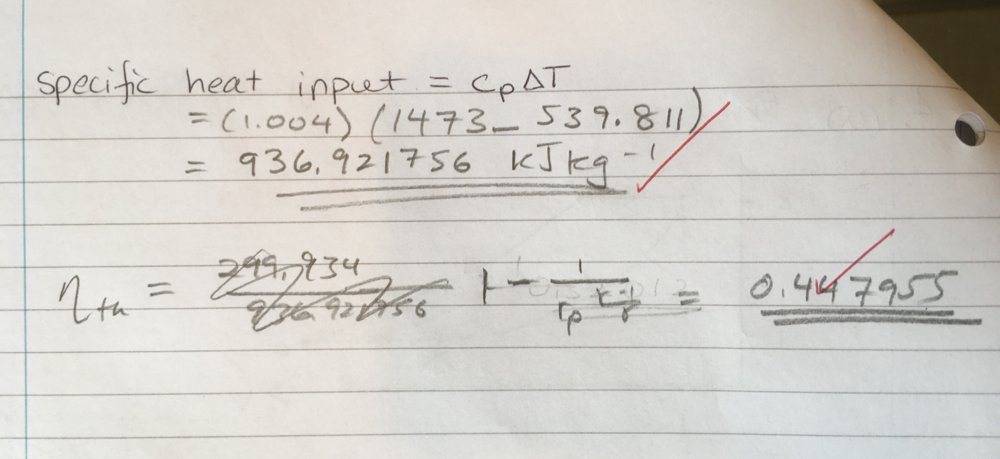 specific heat input = CpΔT
= (1.004) (1473 - 539.811)
= 936.921756 kJkg⁻¹
ηth = 299.934 / 936.921756 1 - 1 / rp = 0.447955